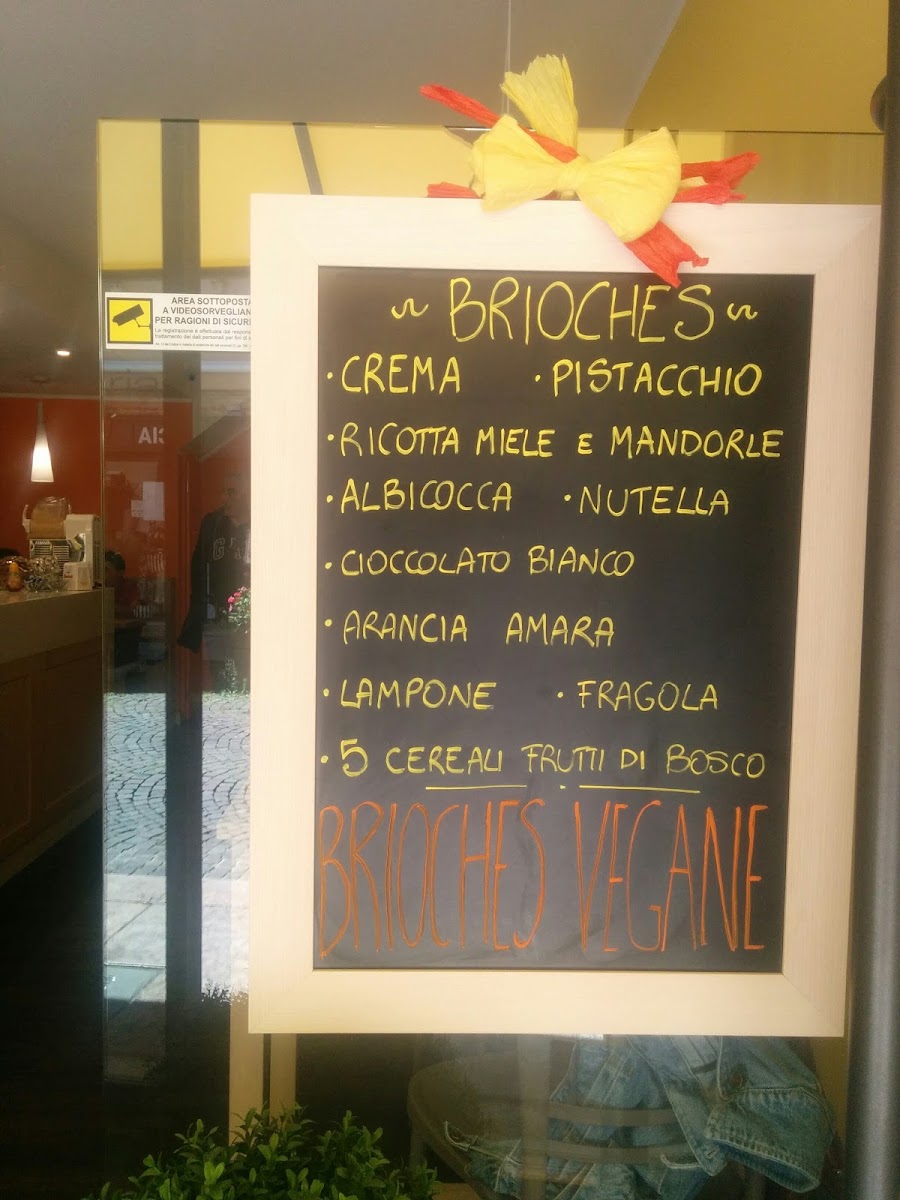 ~ BRIOCHES ~
· CREMA · PISTACCHIO
· RICOTTA MIELE E MANDORLE
· ALBICOCCA · NUTELLA
· CIOCCOLATO BIANCO
· ARANCIA AMARA
· LAMPONE · FRAGOLA
· 5 CEREALI FRUTTI DI BOSCO
BRIOCHES VEGANE
AREA SOTTOPOSTA
A VIDEOSORVEGLIAN
PER RAGIONI DI SICUR
La registrazione è effettuata dal
trattamento dei dati personali per fini di